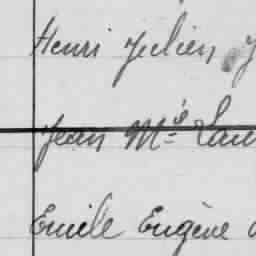 Henri Julien
Jean Mie
Emile Eugène